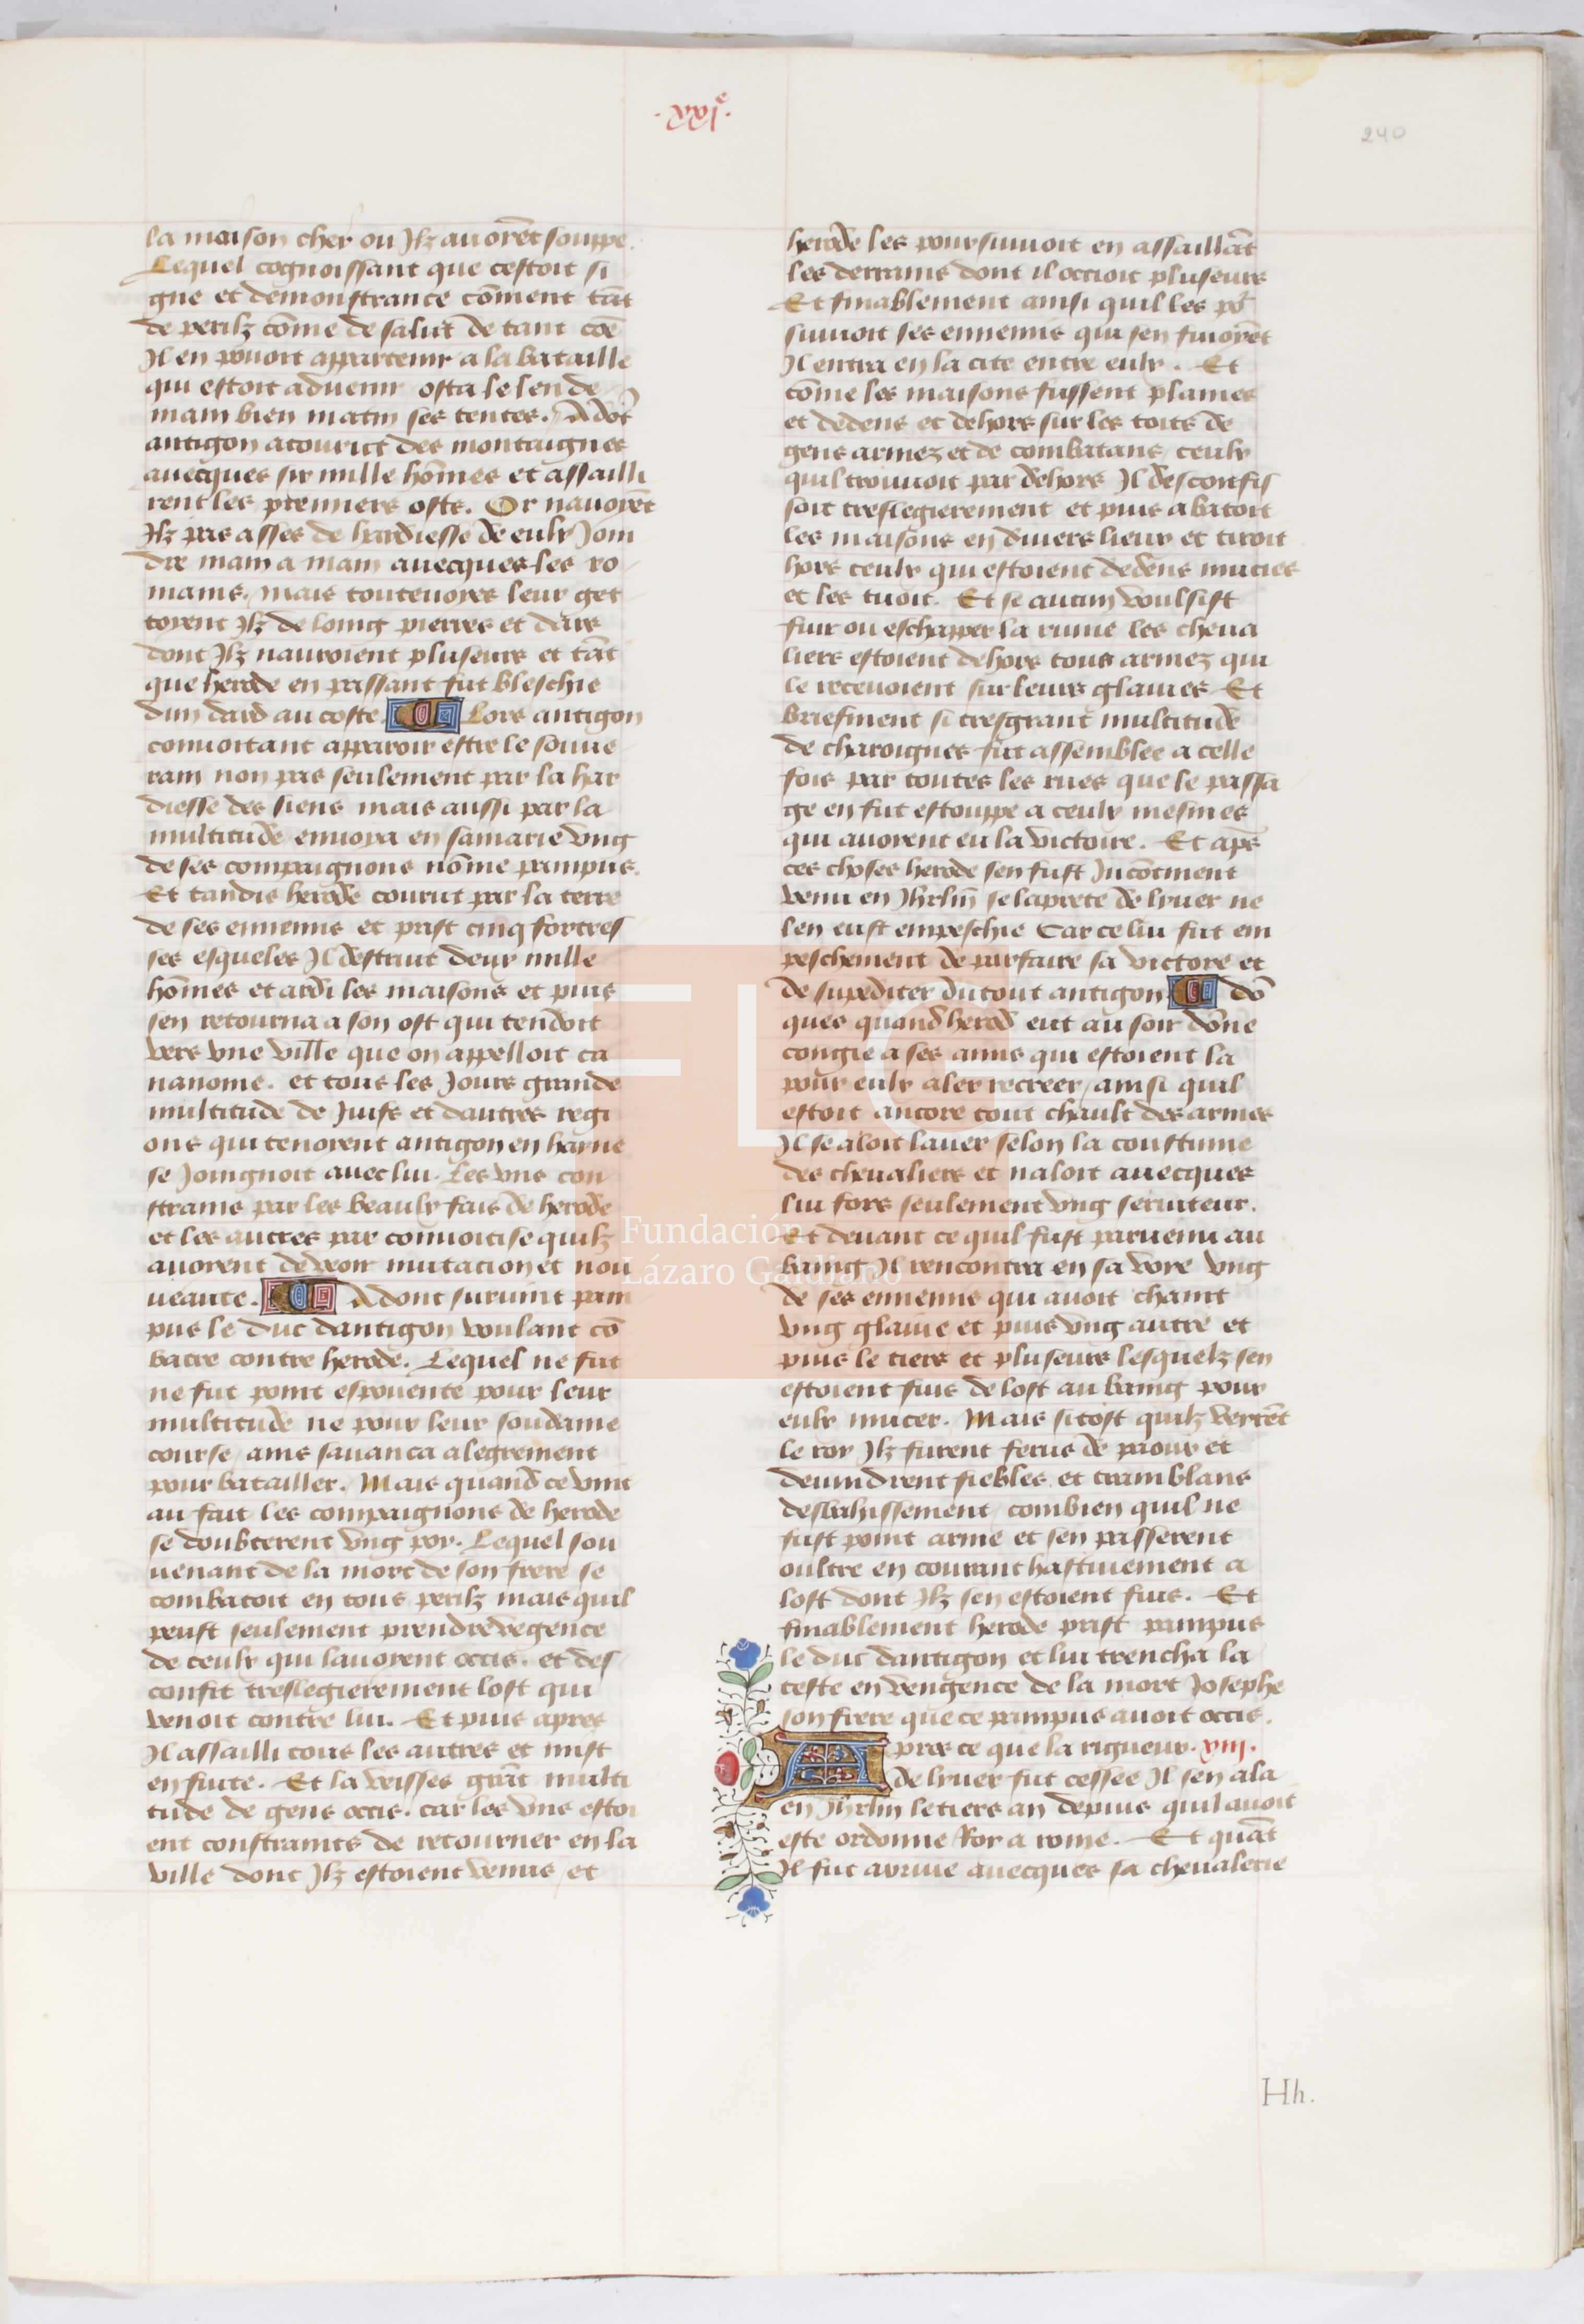 ·xxi^e·
240
la maison cheḣ ou Ilz auoiēt souppe.
Lequel cognoissant que cestoit si
gne et demonstrance cōment tāt
de perilz cōme de salut de tant cōe
Il en pouoit appartenir a la bataille
qui estoit aduenir osta le lende
main bien matin ses tentes. Adōt
antigon acourut des montaignes
auecques six mille hōmes et assailli
rent les premiers osts. Or nauoyēt
Ilz pas asses de hardiesse de eulx Join
dre main a main auecques les ro
mains. mais toutenoyes leur get
toyent Ilz de loing pierres et dars
dont Ilz nauroient pluseurs et tāt
que herode en passant fut bleschie
dun dard au coste. Lors antigon
conuoitant apparoir estre le souue
rain non pas seulement par la har
diesse des siens mais aussi par la
multitude enuoya en samarie vng
de ses compaignons nōme pampus.
Et tandis herode courut par la terre
de ses ennemis et prist cinq fortres
ses esqueles Il destruit deux mille
hōmes et ardi les maisons et puis
sen retourna a son ost qui tendoit
vers vne ville que on appelloit ca
nanome. et tous les Jours grande
multitude de Juifs et dautres regi
ons qui tenoyent antigon en hayne
se Joingnoit auec lui. Les vns con
strains par les beaulx fais de herode
et les autres par conuoitise quilz
auoyent de veoir mutacion et nou
ueaute. Adont suruint pam
pus le duc dantigon voulant cō
batre contre herode. Lequel ne fut
ne fut point espouente pour leur
multitude ne pour leur soudaine
course / ains sauanca alegrement
pour batailler. Mais quand ce vint
au fait les compaignons de herode
se doubterent vng poy. Lequel sou
uenant de la mort de son frere se
combatoit en tous perilz mais quil
peust seulement prendre vegence
de ceulx qui lauoyent occis. et des
confit treslegierement lost qui
venoit contre lui. Et puis apres
Il assailli tous les autres et mist
en fuite. Et la veisses grāt multi
tude de gens occis. car les vns estoi
ent constrains de retourner en la
ville dont Ilz estoient venus / et
herode les poursuiuoit en assaillāt
les derrains dont il occioit pluseurs
Et finablement ainsi quil les pō
suiuoit ses ennemis qui sen fuioyēt
Il entra en la cite entre eulx. Et
cōme les maisons fussent plaines
et dedens et dehors sur les toits de
gens armez et de combatans / ceulx
quil trouuoit par dehors Il desconfis
soit treslegierement et puis abatoit
les maisons en diuers lieux et tiroit
hors ceulx qui estoient dedens mucies
et les tuoit. Et se aucun voulsist
fuir ou eschapper la ruine les cheua
liers estoient dehors tous armez qui
le receuoient sur leurs glaiues Et
briefment si tresgrant multitude
de charoignes fut assemblee a celle
fois par toutes les rues que le passa
ge en fut estouppe a ceulx mesmes
qui auoyent eu la victoire. Et apēs
ces choses herode sen fust Incōtinent
venu en Ihrlm̄ se laprete de lyuer ne
len eust empeschie Car ce lui fut em
peschement de parfaire sa victore et
de supediter du tout antigon. dō
ques quand herod eut au soir dōne
congie a ses amis qui estoient la
pour eulx aler recreer / ainsi quil
estoit ancore tout chault des armes
Il se aloit lauer selon la coustume
des cheualiers et naloit auecques
lui fors seulement vng seruiteur.
Et deuant ce quil fust paruenu au
baing Il rencontra en sa voye vng
de ses ennemis qui auoit chaint
vng glaiue et puis vng autre et
puis le tiers et pluseurs lesquelz sen
estoient fuis de lost au baing pour
eulx mucer. Mais sitost quilz veirēt
le roy Ilz furent ferus de paour et
deuindrent fiebles et tramblans
desbahissement / combien quil ne
fust point arme et sen passerent
oultre en courant hastiuement a
lost dont Ilz sen estoient fuis. Et
finablement herode prist pampus
le duc dantigon et lui trencha la
teste en vengence de la mort Josephe
son frere que ce pampus auoit occis.
Apres ce que la rigueur. xiij.
de lyuer fut cessee Il sen ala
en Ihrlm le tiers an depuis quil auoit
este ordonne Roy a rome. Et quāt
Il fut arriue auecques sa cheualerie
Hh.
FLG
Fundación
Lázaro Galdiano